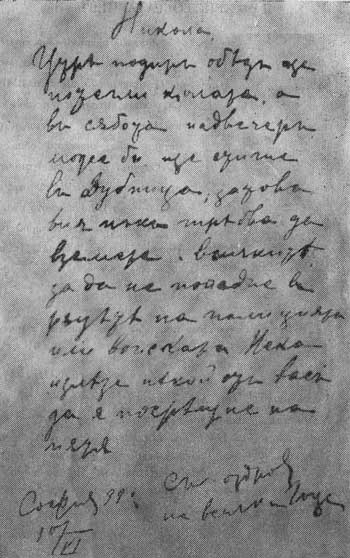 Никола,
Утрѣ подиръ обѣдъ ще
потегли колата, а
въ сѫбота надвечеръ
може би ще стигне
въ Дубница, затова
вия трѣбва да
вземете
за да не попадне въ
рѫцетѣ на полицията
или войската Нека
излѣзе нѣкой отъ васъ
да я посрѣщне на
пѫтя
София 99 г.
10/VI
Съ здраве
на всички Гоце